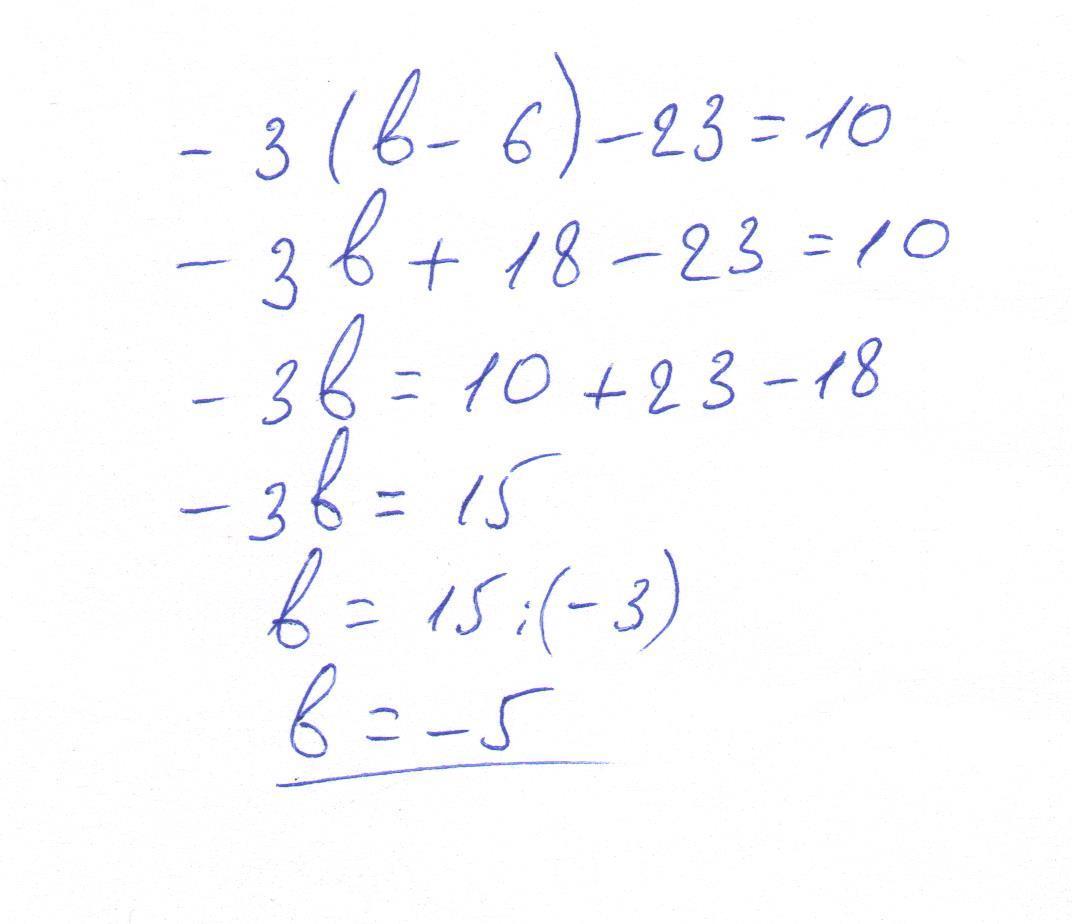 - 3 (в - 6) - 23 = 10
- 3в + 18 - 23 = 10
- 3в = 10 + 23 - 18
- 3в = 15
в = 15 : (-3)
в = -5